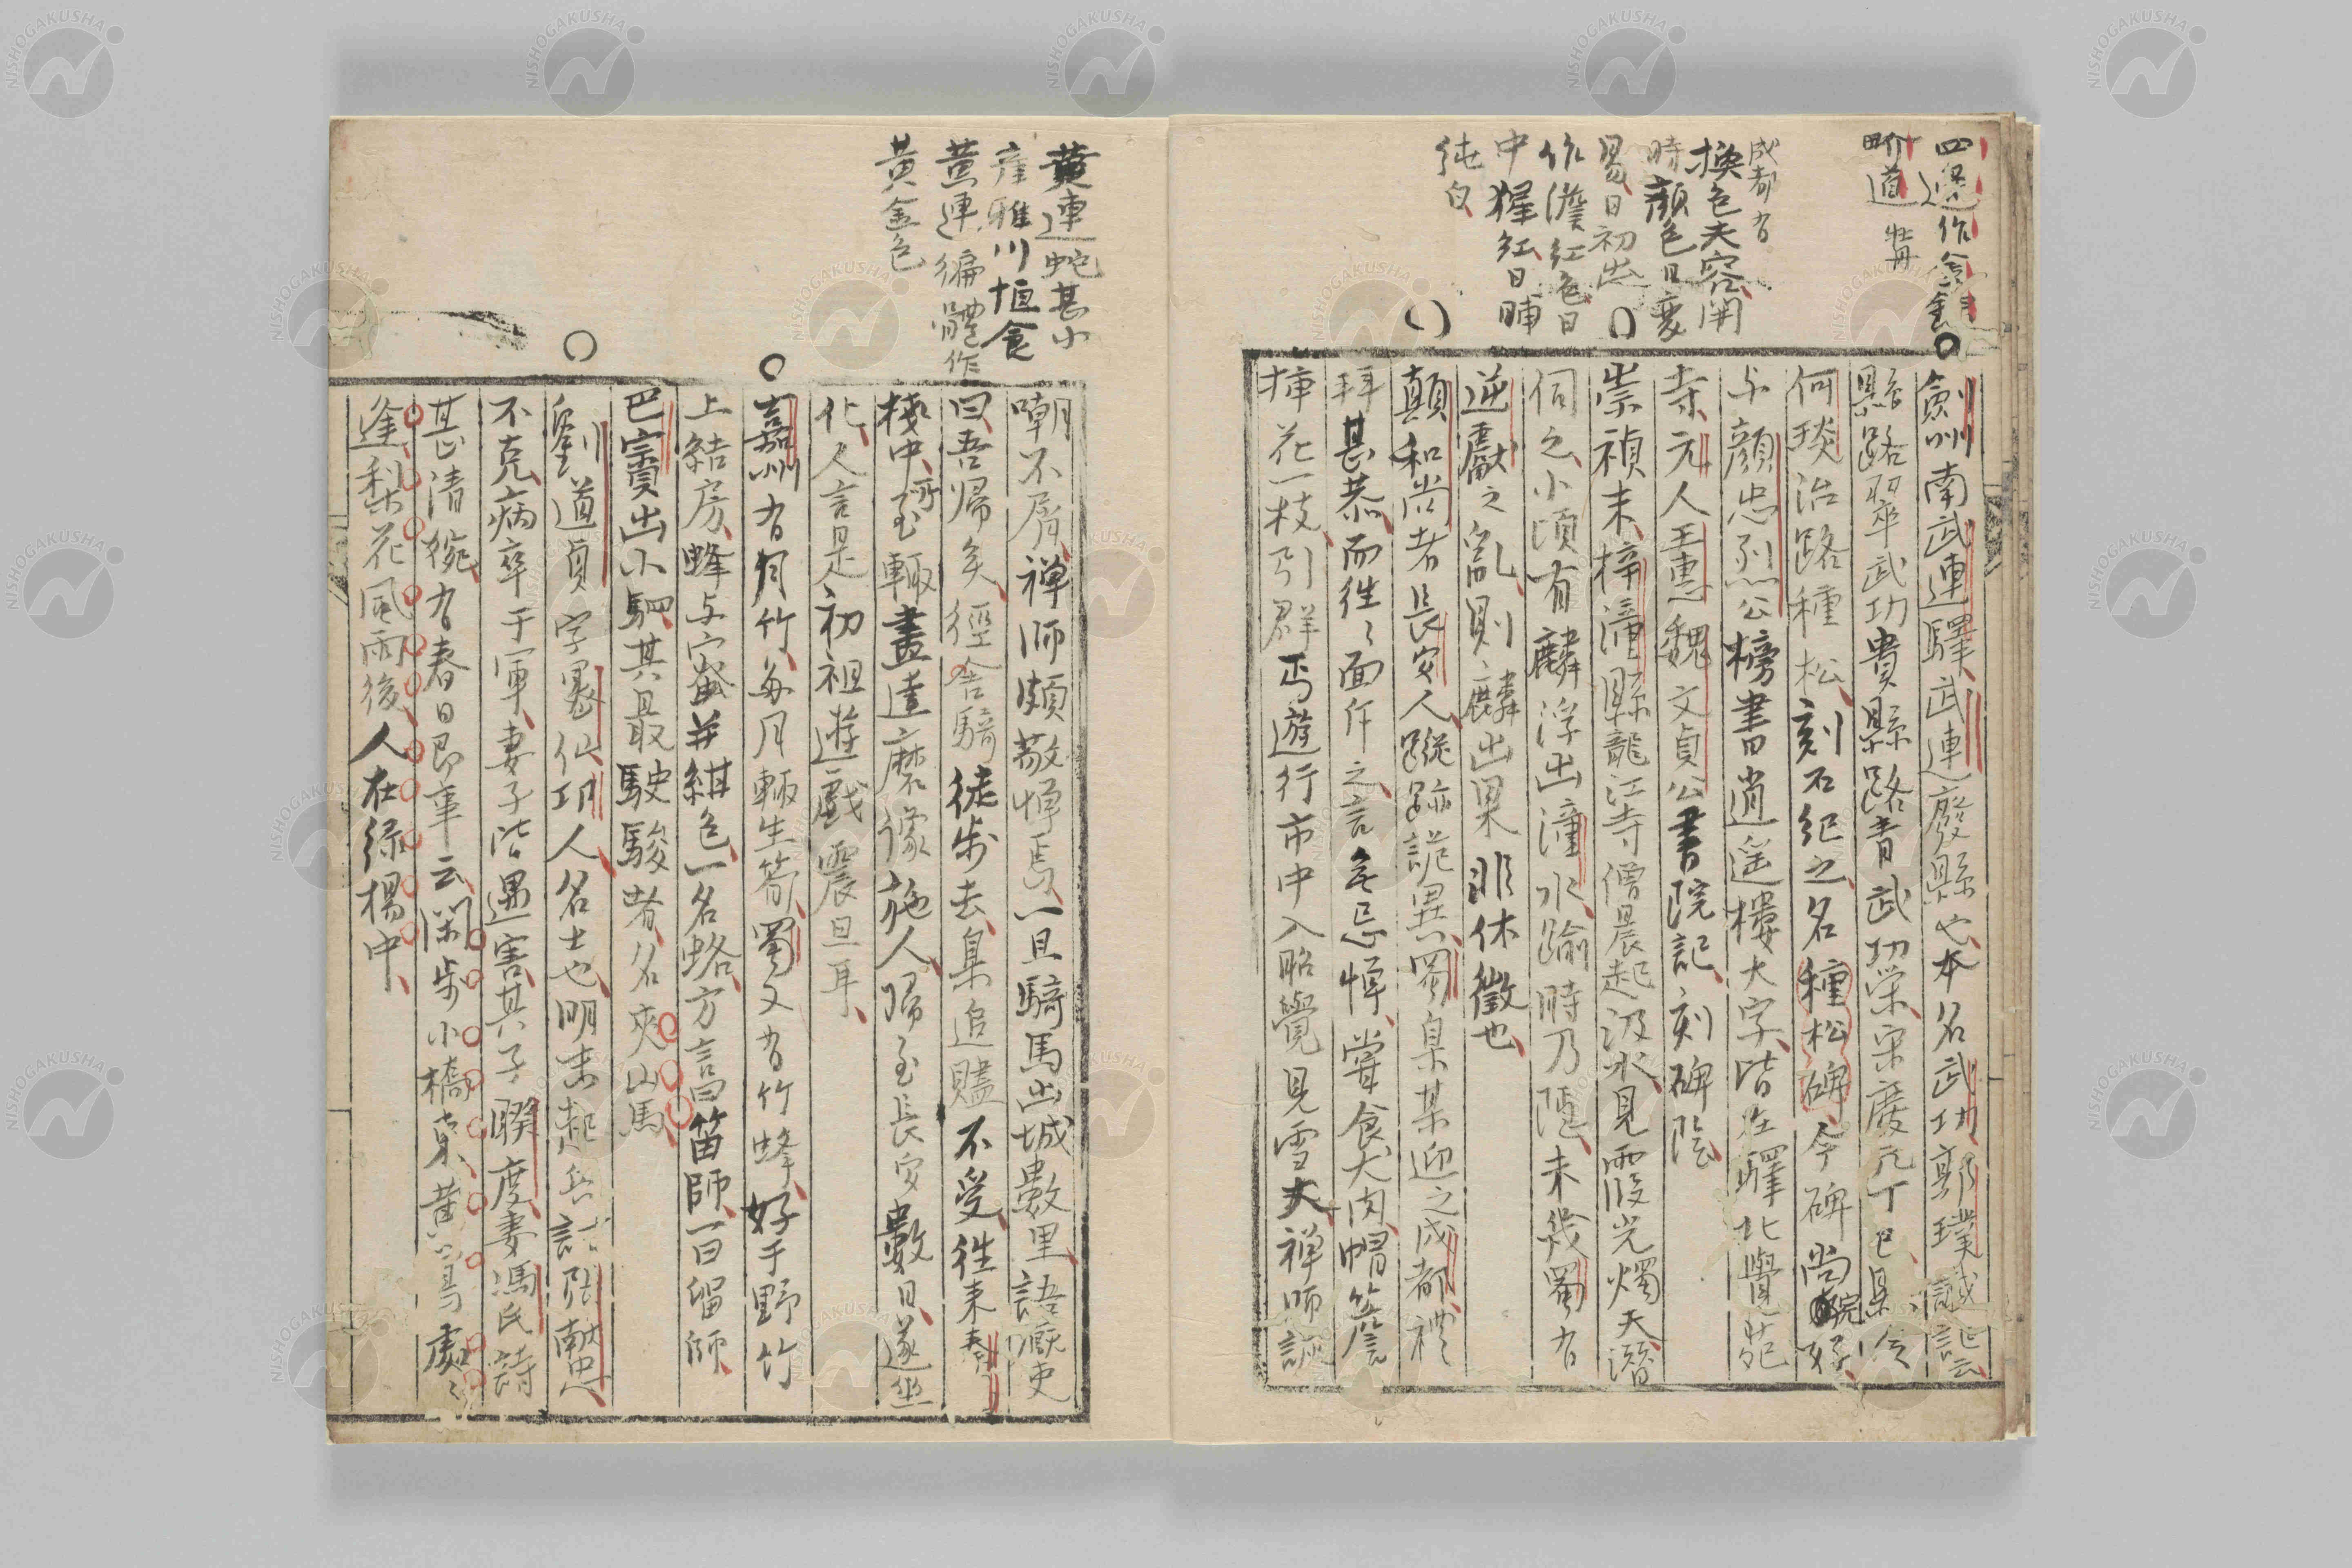 四邊作金
界道 牡丹
成都有
換色夫容開
時顏色日變
易日初出
作淺紅色日
中猩紅日晡
純白
劍州南武連驛武連廢縣也本名武功郭璞識云
縣路翠武功貴縣路青武功榮宋慶元丁巳縣令
何琰治路種松刻石紀之名種松碑今碑尚完好
与顏忠烈公榜書逍遥樓大字皆在驛北覺苑
寺元人王惠魏文貞公書院記刻碑陰
崇禎末梓潼縣龍江寺僧晨起汲水見霞光燭天潛
伺之小頃有麟浮出潼水踰時乃隱未幾蜀有
逆獻之亂則麟出果非休徵也
顛和尚者長安人蹤跡詭異蜀臬某迎之成都禮
拜甚恭而徃〻面斥之言無忌憚嘗食犬肉帽簷
揷花一枝引群丐遊行市中入昭覺見雪大禪師誠
黃連蛇甚小
産雅川恒食
黃連徧體作
黃金色
嘲不屑禅師頗敬憚焉一旦騎馬出城數里語厩吏
曰吾歸矣徑舍騎徒步去臬追贐不受徃来秦
棧中所至輙畫達磨像施人歸至長安數日遂坐
化人言是初祖遊戯震旦耳
嘉州有月竹每月輙生筍蜀又有竹蜂好于野竹
上結房蜂与蜜並紺色一名蛒方言笛師一曰留師
巴竇出小駟其最駛駿者名夾山馬
劉道貞字墨仙邛人名士也明末起兵討張献忠
不克病卒于軍妻子皆遇害其子睽度妻馮氏詩
甚清婉有春日即事云閑步小橋東黃鳥處〻
逢梨花風雨後人在綠楊中